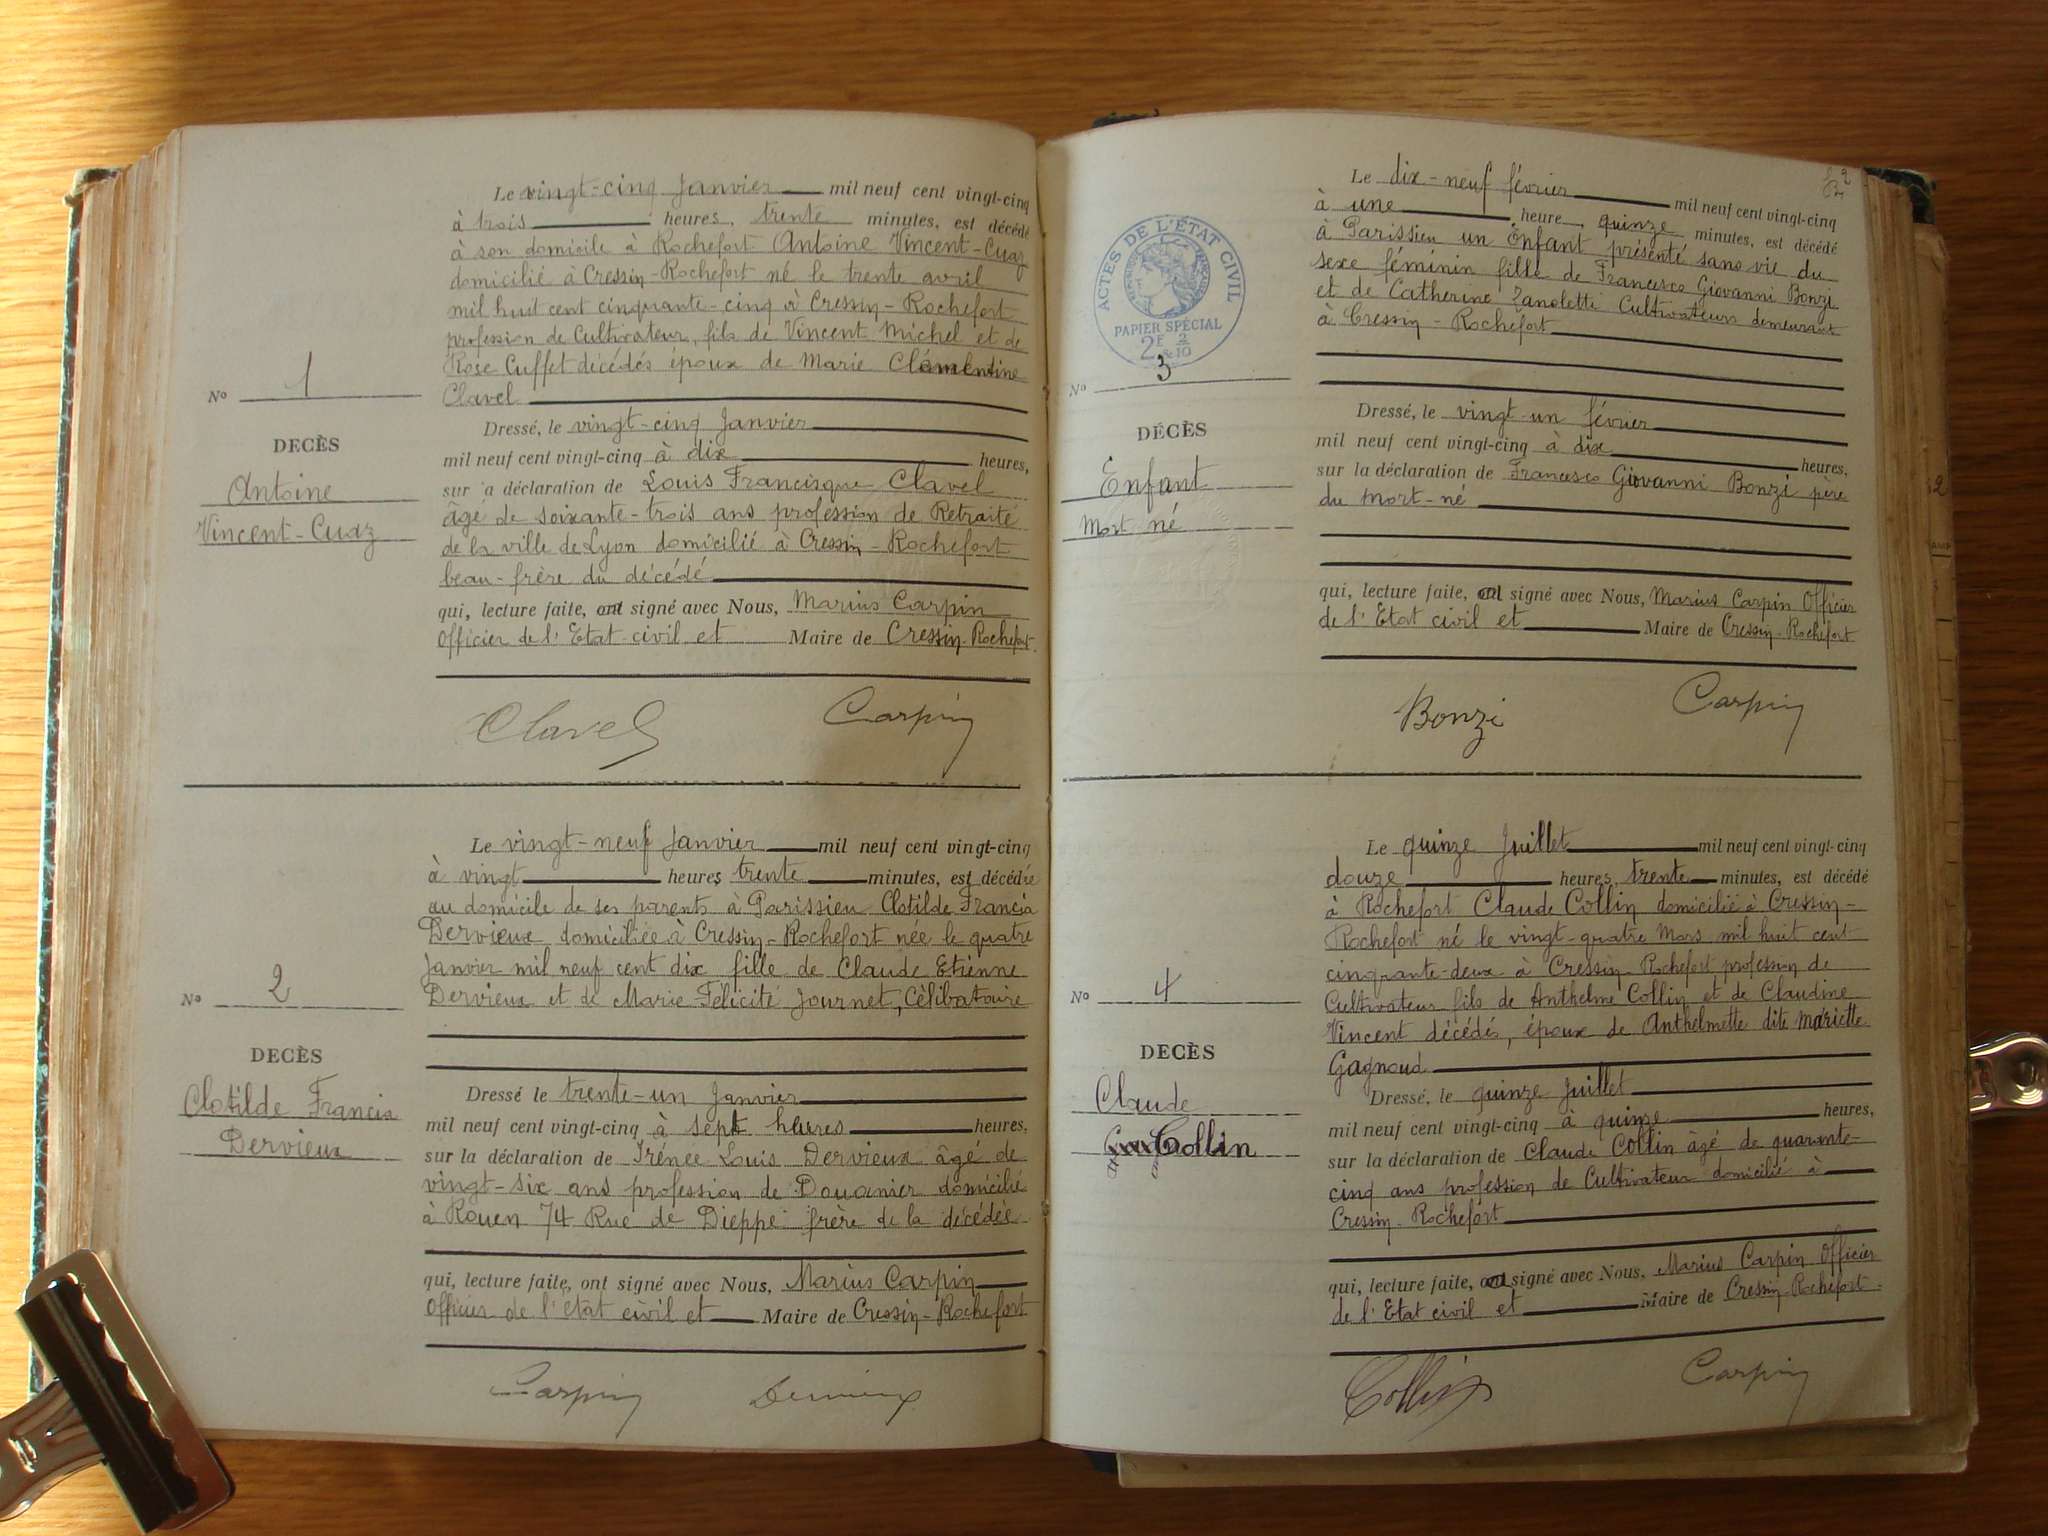 Le vingt-cinq Janvier mil neuf cent vingt-cinq
à trois heures, trente minutes, est décédé
à son domicile à Rochefort Antoine Vincent-Cuaz
domicilié à Cressin-Rochefort né le trente avril
mil huit cent cinquante-cinq à Cressin-Rochefort
profession de Cultivateur, fils de Vincent Michel et de
Rose Cuffet décédés époux de Marie Clémentine
Clavel
No 1
DECÈS
Antoine
Vincent-Cuaz
Dressé, le vingt-cinq Janvier
mil neuf cent vingt-cinq à dix heures,
sur a déclaration de Louis Francisque Clavel
âgé de soixante-trois ans profession de Retraité
de la ville de Lyon domicilié à Cressin-Rochefort
beau-frère du décédé
qui, lecture faite, ont signé avec Nous, Marius Carpin
Officier de l'Etat-civil et Maire de Cressin-Rochefort.
Clavel Carpin
Le vingt-neuf Janvier mil neuf cent vingt-cinq
à vingt heures trente minutes, est décédée
au domicile de ses parents à Parissieu Clotilde Francia
Dervieux domiciliée à Cressin-Rochefort née le quatre
Janvier mil neuf cent dix fille de Claude Etienne
Dervieux et de Marie Félicité Journet, Célibataire
No 2
DECÈS
Clotilde Francia
Dervieux
Dressé le trente-un Janvier
mil neuf cent vingt-cinq à sept heures heures,
sur la déclaration de Irénée Louis Dervieux âgé de
vingt-six ans profession de Douanier domicilié
à Rouen 74 Rue de Dieppe frère de la décédée
qui, lecture faite, ont signé avec Nous, Marius Carpin
Officier de l'état civil et Maire de Cressin-Rochefort
Carpin Dervieux
Le dix-neuf février mil neuf cent vingt-cinq
à une heure, quinze minutes, est décédé
à Parissieu un Enfant présenté sans vie du
sexe féminin fille de Francesco Giovanni Bonzi
et de Catherine Zanoletti Cultivateurs demeurant
à Cressin-Rochefort
ACTES DE L'ÉTAT CIVIL
PAPIER SPÉCIAL
2F & 2/10
No 3
DÉCÈS
Enfant
Mort né
Dressé, le vingt-un février
mil neuf cent vingt-cinq à dix heures,
sur la déclaration de Francesco Giovanni Bonzi père
du mort-né
qui, lecture faite, ont signé avec Nous, Marius Carpin Officier
de l'Etat civil et Maire de Cressin-Rochefort
Bonzi Carpin
Le quinze Juillet mil neuf cent vingt-cinq
douze heures, trente minutes, est décédé
à Rochefort Claude Collin domicilié à Cressin-
Rochefort né le vingt-quatre Mars mil huit cent
cinquante-deux à Cressin-Rochefort profession de
Cultivateur fils de Anthelme Collin et de Claudine
Vincent décédés, époux de Anthelmette dite Mariette
Gagnoud
No 4
DECÈS
Claude
Collin
Dressé, le quinze Juillet
mil neuf cent vingt-cinq à quinze heures,
sur la déclaration de Claude Collin âgé de quarante-
cinq ans profession de Cultivateur domicilié à
Cressin-Rochefort
qui, lecture faite, ont signé avec Nous, Marius Carpin Officier
de l'Etat civil et Maire de Cressin-Rochefort.
Collin Carpin